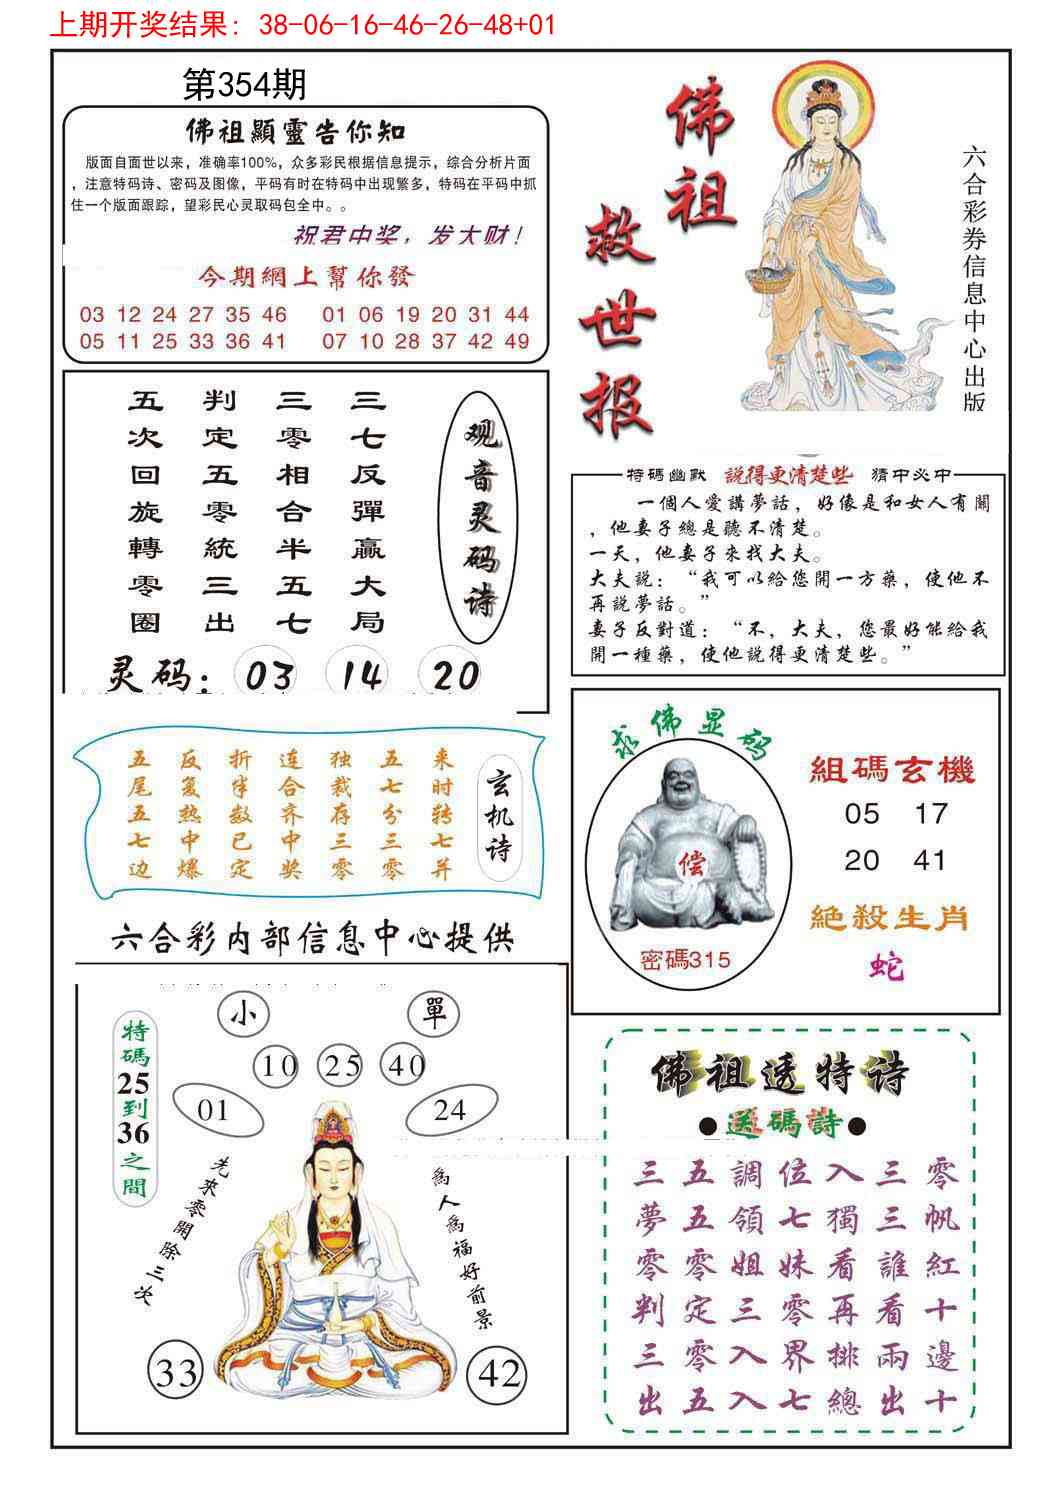 上期开奖结果: 38-06-16-46-26-48+01
第354期
佛祖顯靈告你知
版面自面世以来，准确率100%，众多彩民根据信息提示，综合分析片面
，注意特码诗、密码及图像，平码有时在特码中出现繁多，特码在平码中抓
住一个版面跟踪，望彩民心灵取码包全中。。
祝君中奖，发大财！
今期網上幫你發
03 12 24 27 35 46 01 06 19 20 31 44
05 11 25 33 36 41 07 10 28 37 42 49
佛祖
救世报
六合彩券信息中心出版
观音灵码诗
三七反彈赢大局
三零相合半五七
判定五零統三出
五次回旋轉零圈
灵码：03 14 20
特碼幽默 說得更清楚些 猜中必中
一個人愛講夢話，好像是和女人有關
，他妻子總是聽不清楚。
一天，他妻子來找大夫。
大夫説：“我可以给您開一方藥，使他不
再説夢話。”
妻子反對道：“不，大夫，您最好能给我
開一種藥，使他説得更清楚些。”
玄机诗
来时转七并
五七分三零
独裁存三零
连合齐中奖
折半数已定
反复热中爆
五尾五七边
六合彩内部信息中心提供
求佛显码
偿
密碼315
組碼玄機
05 17
20 41
絕殺生肖
蛇
小 單
10 25 40
01 24
特碼25到36之間
先來零開除三次
為人為福好前景
33 42
佛祖透特诗
●送碼詩●
三五調位入三零
夢五領七獨三帆
零零姐妹看誰紅
判定三零再看十
三零入界排兩邊
出五入七總出十